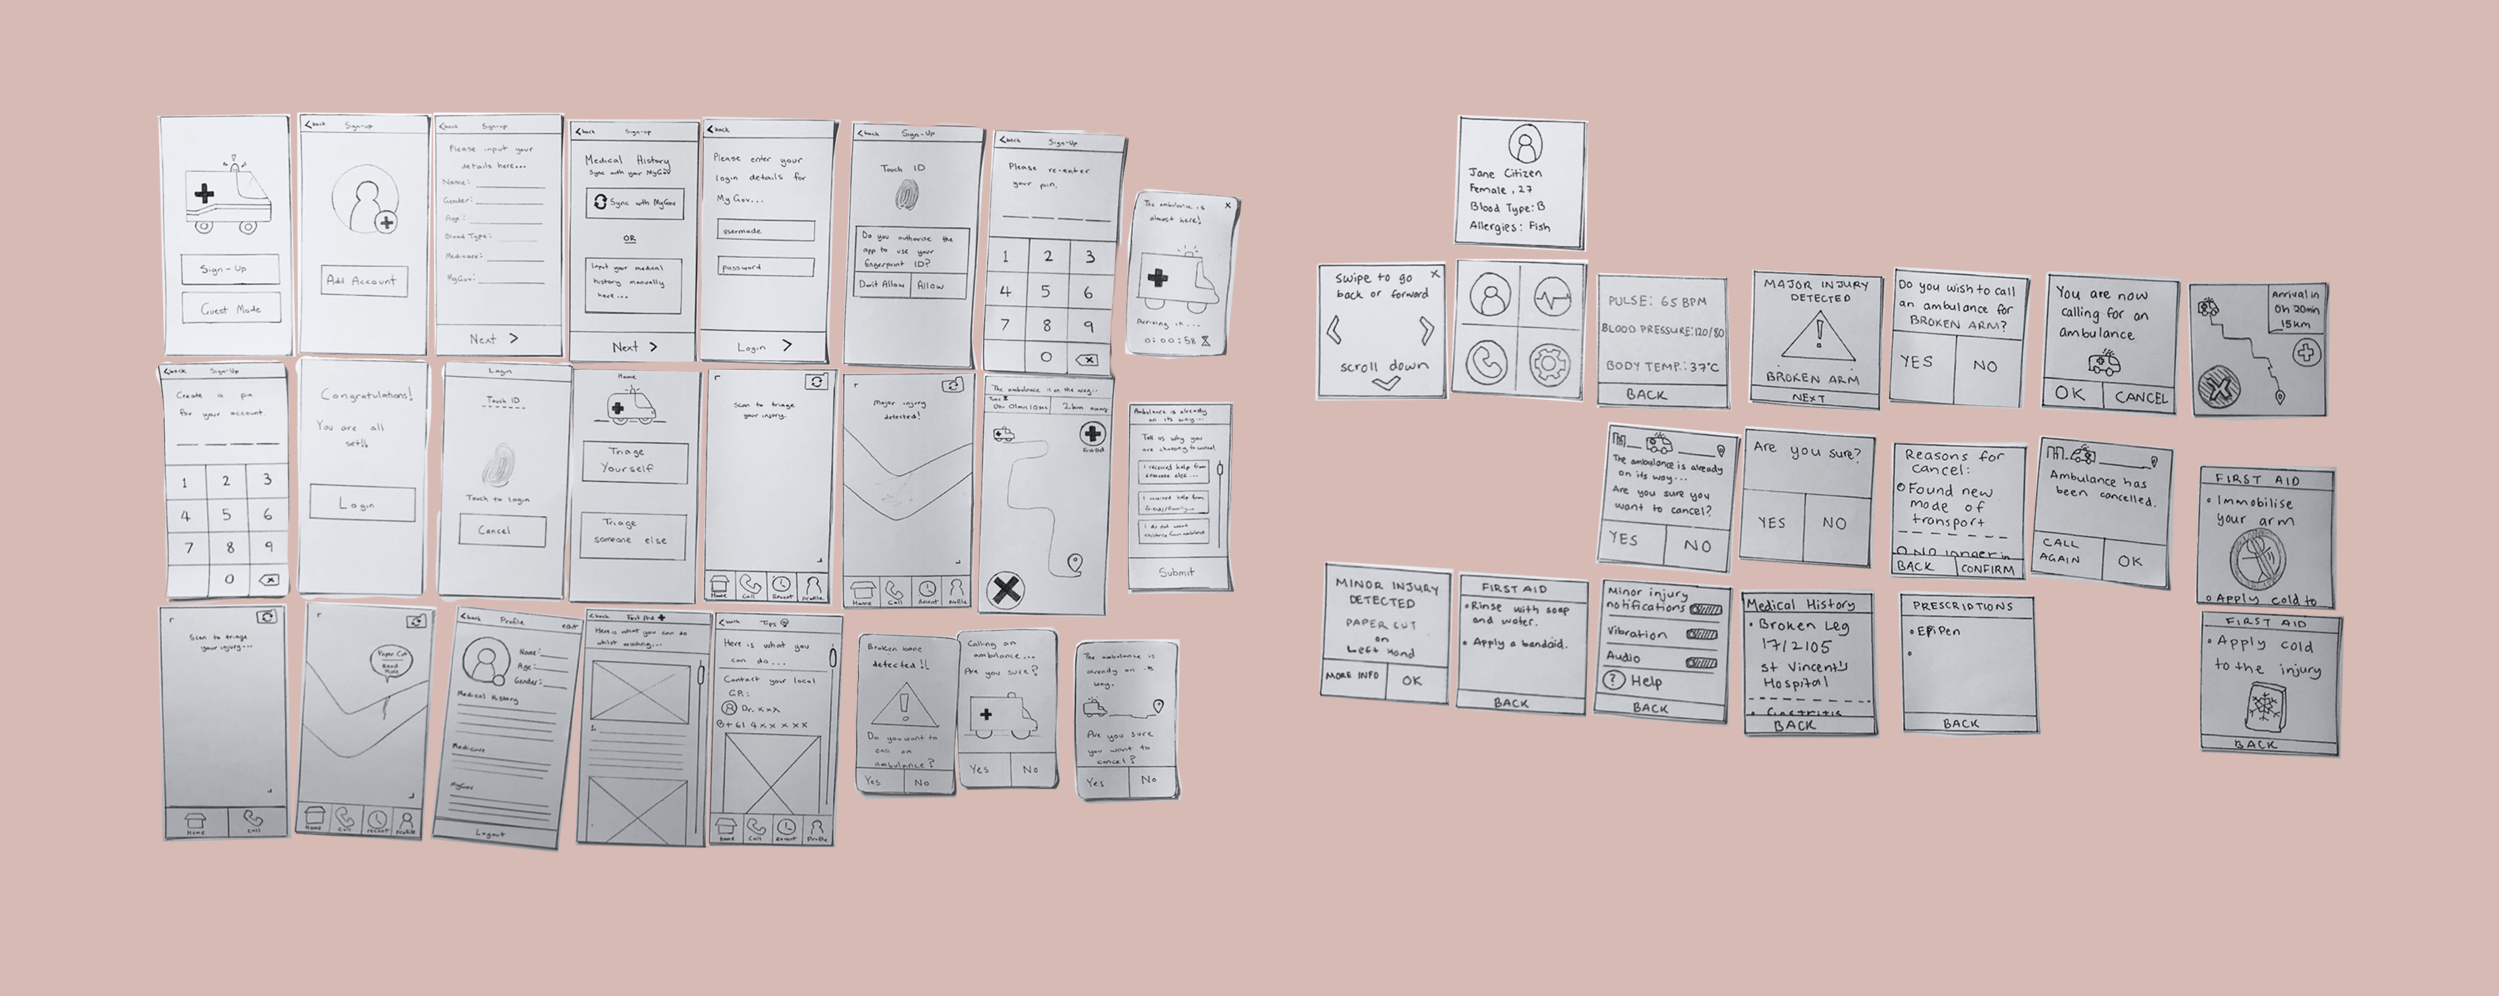 Sign-Up
Guest Mode
< back Sign-up
Add Account
< back Sign-up
Please input your
details here...
Name:
Gender:
Age:
Blood Type:
Medicare:
MyGov:
Next >
< back Sign-up
Medical History
Sync with your MyGov
Sync with MyGov
OR
Input your medical
history manually
here...
Next >
< back
Please enter your
login details for
MyGov...
password
Login >
< back Sign-Up
Touch ID
Do you authorise the
app to use your
fingerprint ID?
Don't Allow
Allow
< back Sign-Up
Please re-enter
your pin.
1 2 3
4 5 6
7 8 9
0
The ambulance is
almost here!
X
Arriving in...
0:00:58
< back Sign-Up
Create a pin
for your account.
1 2 3
4 5 6
7 8 9
0
Congratulations!
You are all
set!!
Login
Login
Touch ID
Touch to login
Cancel
Home
Triage
Yourself
Triage
someone else
Scan to triage
your injury.
Home Call Recent Profile
Major injury
detected!
Home Call Recent Profile
The ambulance is on the way...
2km away
Ambulance is already
on its way...
Tell us why you
are choosing to cancel
I received help from
someone else...
I received help from
friends/family...
I do not want
assistance from ambulance
Submit
Scan to triage
your injury...
Home Call
Paper Cut
Read
More
Home Call Recent Profile
< back Profile edit
Name:
Age:
Gender:
Medical History
Medicare
MyGov
Logout
< back First Aid
Here is what you can do
whilst waiting...
1.
< back Tips
Here is what you
can do...
Contact your local
G.P.:
Dr. xxx
+61 4xxxxxx
Home Call Recent Profile
Broken bone
detected!!
Do you want to
call an
ambulance?
Yes No
Calling an
ambulance...
Are you sure?
Yes No
The ambulance is
already on its
way.
Are you sure
you want to
cancel?
Yes No
Jane Citizen
Female, 27
Blood Type: B
Allergies: Fish
Swipe to go
back or forward
X
scroll down
PULSE: 65 BPM
BLOOD PRESSURE:120/80
BODY TEMP.: 37°C
BACK
MAJOR INJURY
DETECTED
!
BROKEN ARM
NEXT
Do you wish to call
an ambulance for
BROKEN ARM?
YES NO
You are now
calling for an
ambulance
OK CANCEL
Arrival in
0h 20min
15km
The ambulance is already
on its way...
Are you sure you
want to cancel?
YES NO
Are you sure?
YES NO
Reasons for
Cancel:
Found new
mode of
transport
No longer in
BACK CONFIRM
Ambulance has
been cancelled.
CALL
AGAIN
OK
FIRST AID
• Immobilise
your arm
Apply cold to
MINOR INJURY
DETECTED
PAPER CUT
on
Left Hand
MORE INFO OK
FIRST AID
• Rinse with soap
and water.
• Apply a bandaid.
BACK
Minor injury
notifications
Vibration
Audio
? Help
BACK
Medical History
• Broken Leg
17/2105
St Vincent's
Hospital
• Gastritis
BACK
PRESCRIPTIONS
• EpiPen
•
BACK
FIRST AID
• Apply cold
to the injury
BACK